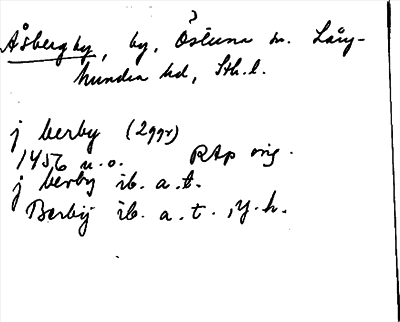 Åsbergby, by, Östuna sn. Lång-
hundra hd, Sth.l.
j berby (2ggr)
1456 u.o. RAp orig.
j berby ib. a.t.
Berbij ib. a.t., y.h.